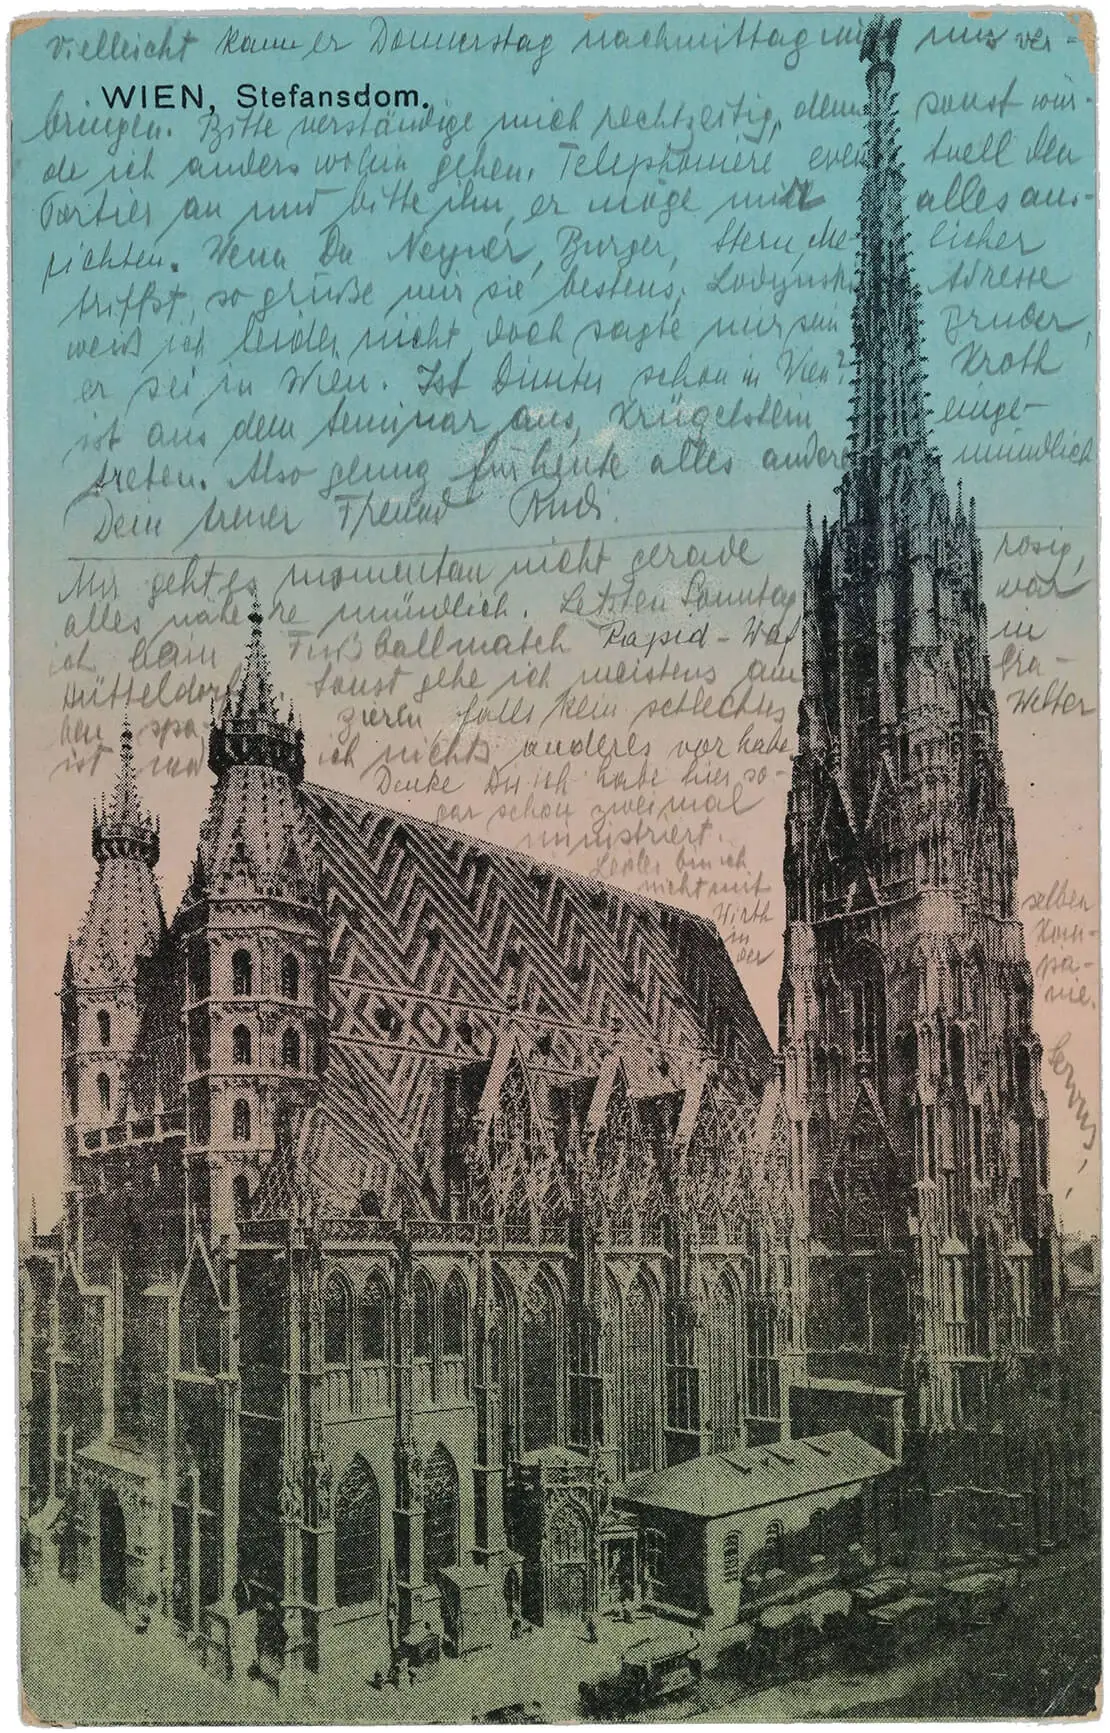 vielleicht kann er Donnerstag nachmittag mit uns ver-
WIEN, Stefansdom.
bringen. Bitte verständige mich rechtzeitig, denn sonst wür-
de ich anders wohin gehen. Telephoniere even tuell den
Portier an und bitte ihn, er möge mir alles aus-
richten. Wenn Du Burger, Stern, licher
triffst, so grüße mir sie bestens; Adresse
weiß ich leider nicht, doch sagte mir sein Bruder,
er sei in Wien. Ist schon in Wien? Kroth
ist aus dem Seminar aus, Krügelstein einge-
treten. Also genug für heute alles andere mündlich
Dein treuer Freund Rudi.
Mir geht es momentan nicht gerade rosig,
alles nähere mündlich. Letzten Sonntag war
ich beim Fußballmatch Rapid - Waf in
Hütteldorf. Sonst gehe ich meistens am Gra-
ben spa- zieren, falls kein schlechtes Wetter
ist und ich nichts anderes vor habe.
Denke Du ich habe hier so-
gar schon zweimal
ministriert.
Leider bin ich
nicht mit
Wirth
in
der
selben
Kom-
pa-
nie.
Servus,